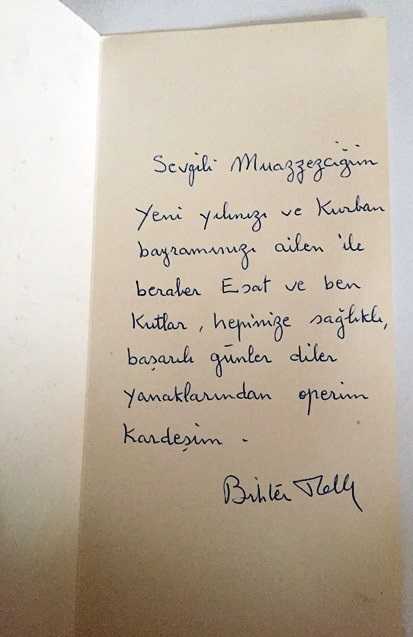 Sevgili Muazzezciğim
Yeni yılınızı ve Kurban
bayramınızı ailen ile
beraber Esat ve ben
Kutlar, hepinize sağlıklı,
başarılı günler diler
yanaklarından operim
kardeşim.
Bihter